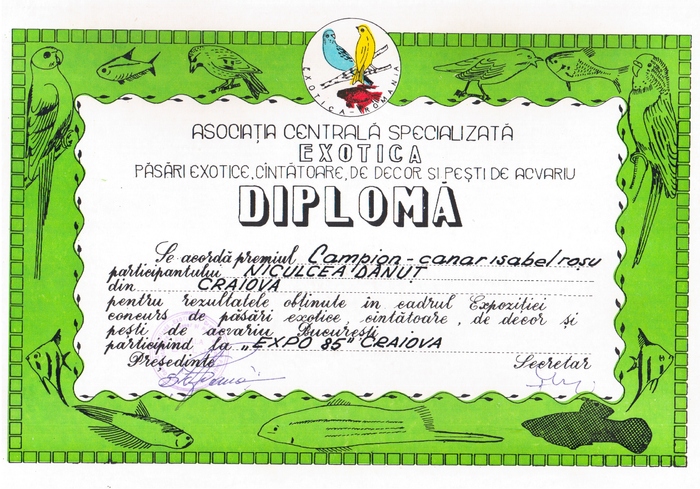 EXOTICA - ROMANIA
ASOCIAȚIA CENTRALĂ SPECIALIZATĂ
EXOTICA
PĂSĂRI EXOTICE, CÎNTĂTOARE, DE DECOR SI PEȘTI DE ACVARIU
DIPLOMĂ
Se acordă premiul Campion - canar isabel roșu
participantului NICULCEA DĂNUȚ
din CRAIOVA
pentru rezultatele obtinute in cadrul Expozitiei
concurs de păsări exotice, cintătoare, de decor și
pești de acvariu București
participind la „EXPO 85" CRAIOVA
Președinte Secretar